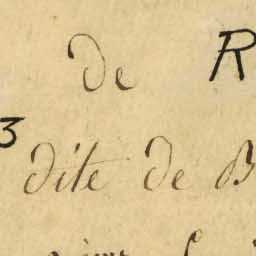 de R
3
dite de B